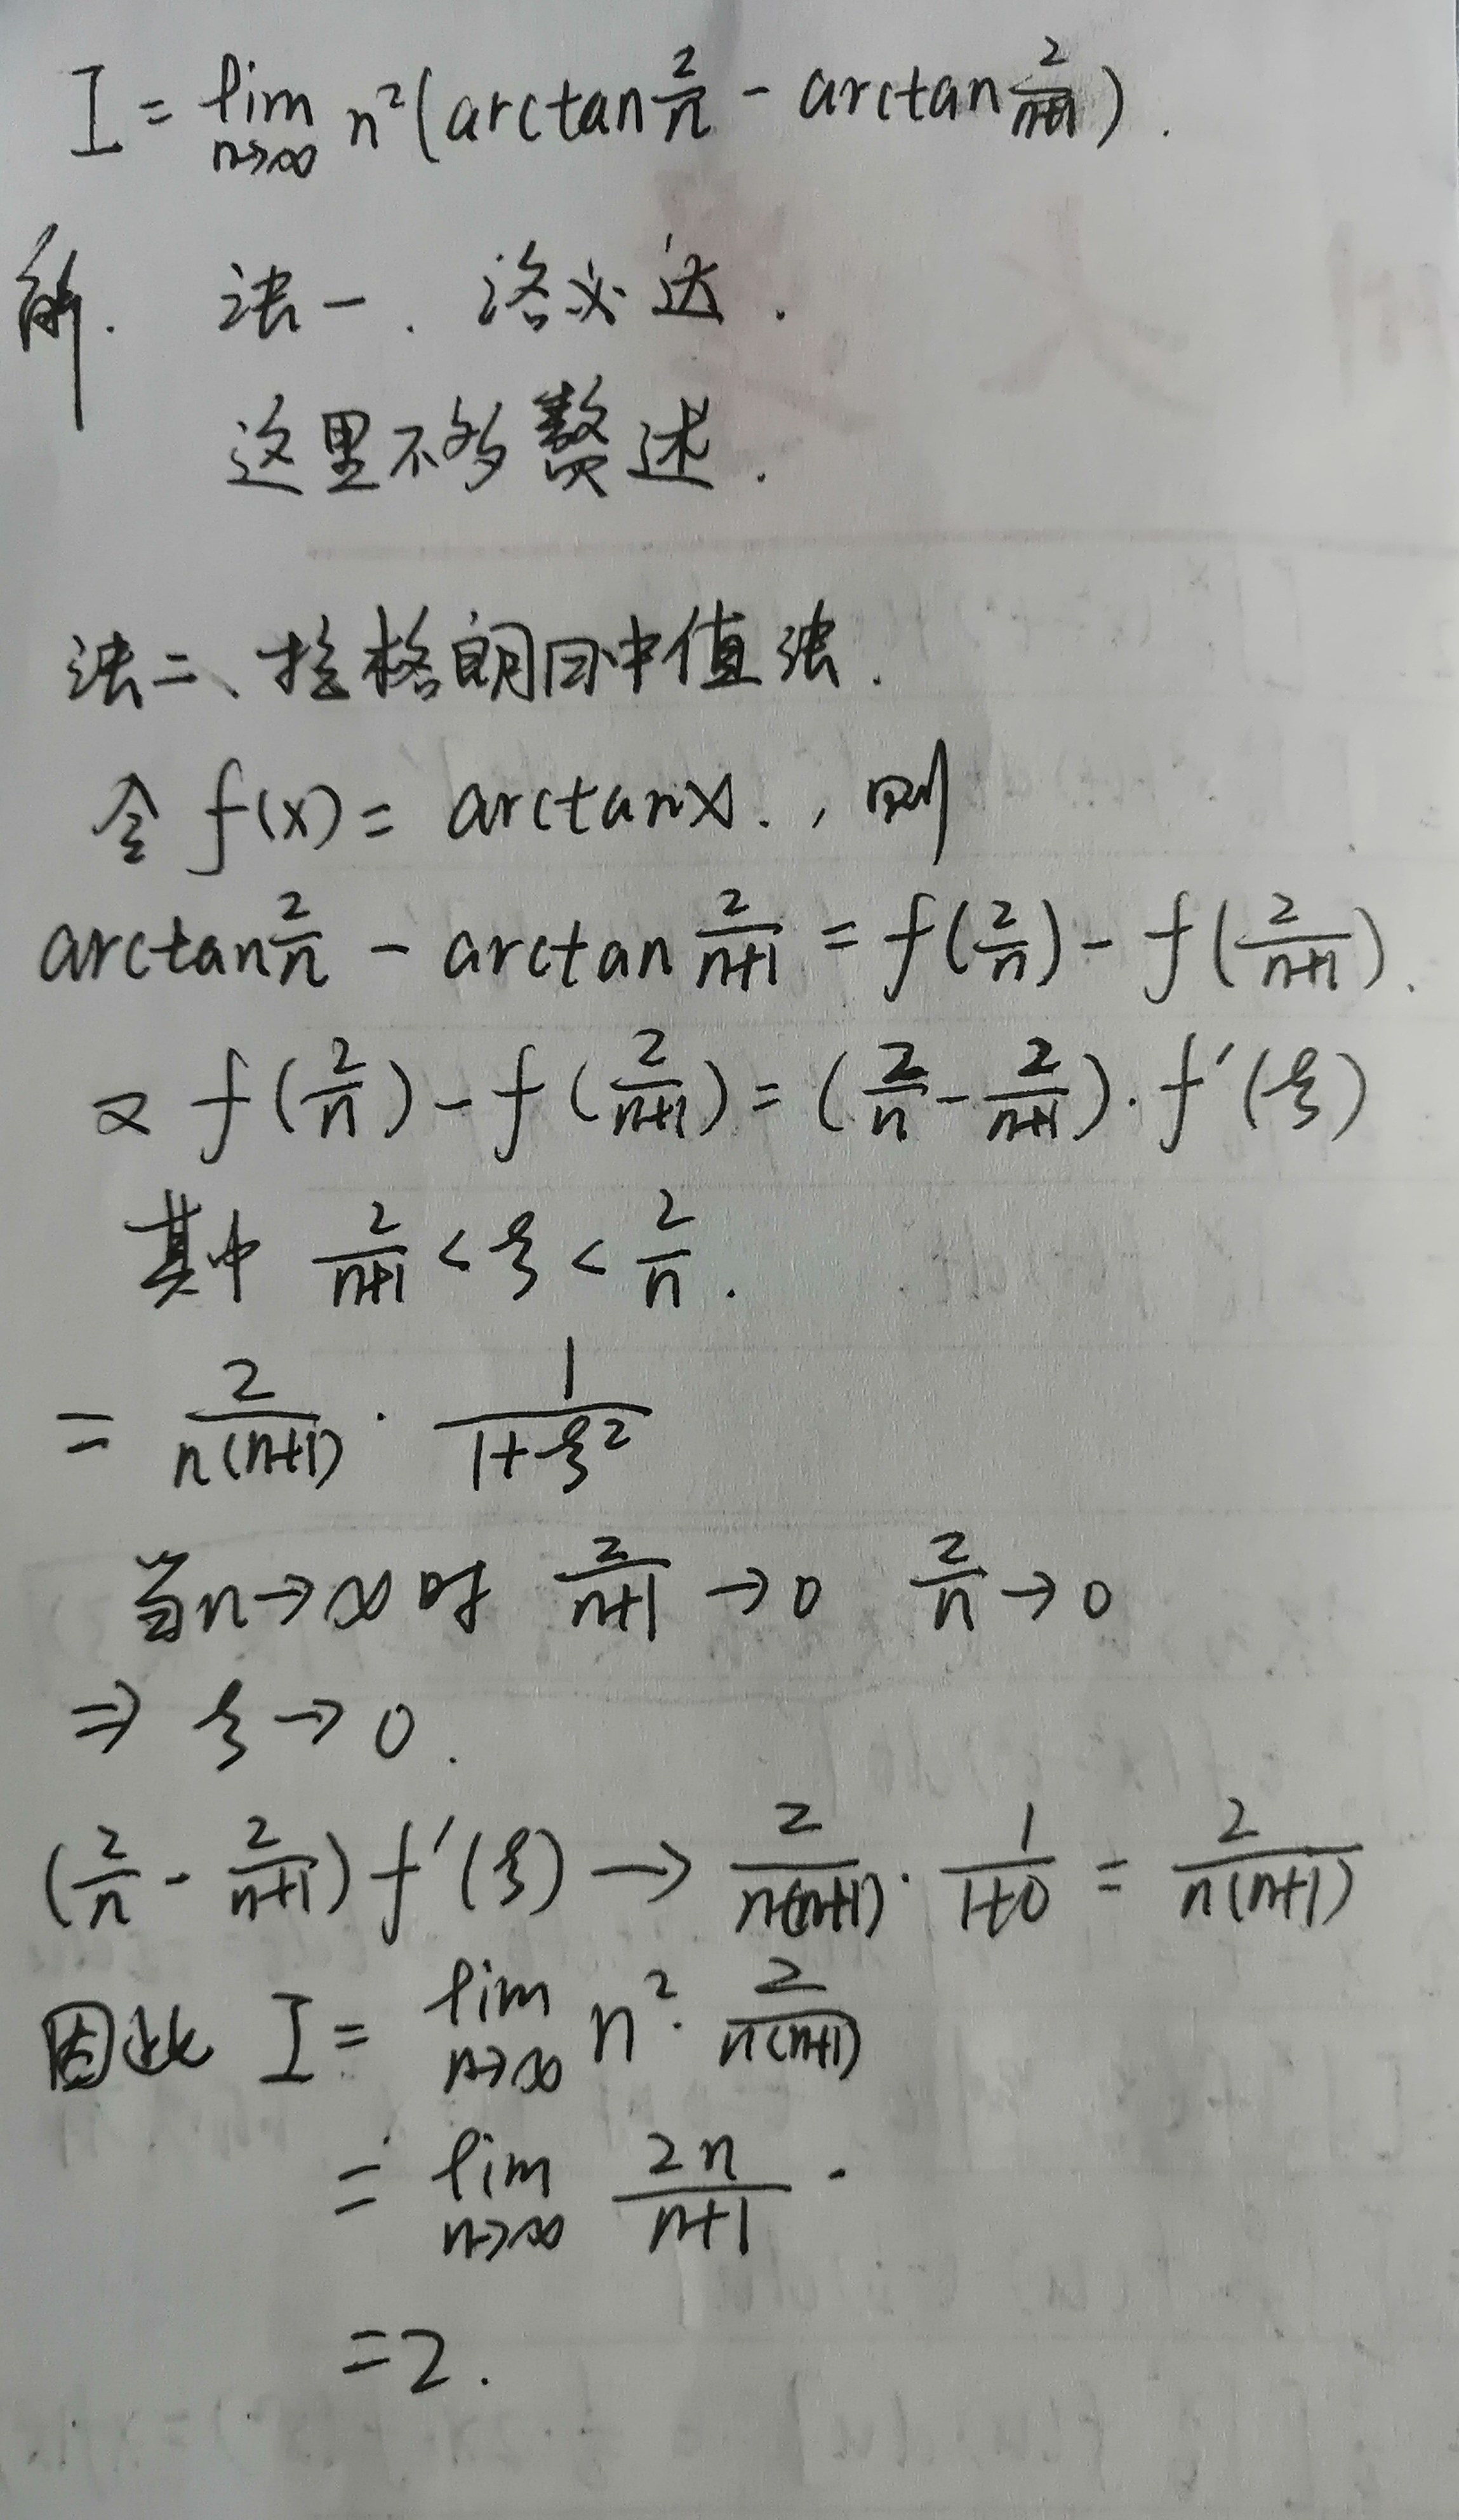 I = lim n→∞ n²(arctan 2/n - arctan 2/(n+1)).
解. 法一. 洛必达.
这里不多赘述.
法二、拉格朗日中值法.
令 f(x) = arctanx., 则
arctan 2/n - arctan 2/(n+1) = f(2/n) - f(2/(n+1)).
又 f(2/n) - f(2/(n+1)) = (2/n - 2/(n+1))·f′(ξ)
其中 2/(n+1) < ξ < 2/n.
= 2/(n(n+1)) · 1/(1+ξ²)
当n→∞时 2/(n+1) →0 2/n →0
⇒ ξ→0.
(2/n - 2/(n+1)) f′(ξ) → 2/(n(n+1)) · 1/(1+0) = 2/(n(n+1))
因此 I = lim n→∞ n²· 2/(n(n+1))
= lim n→∞ 2n/(n+1) .
=2.